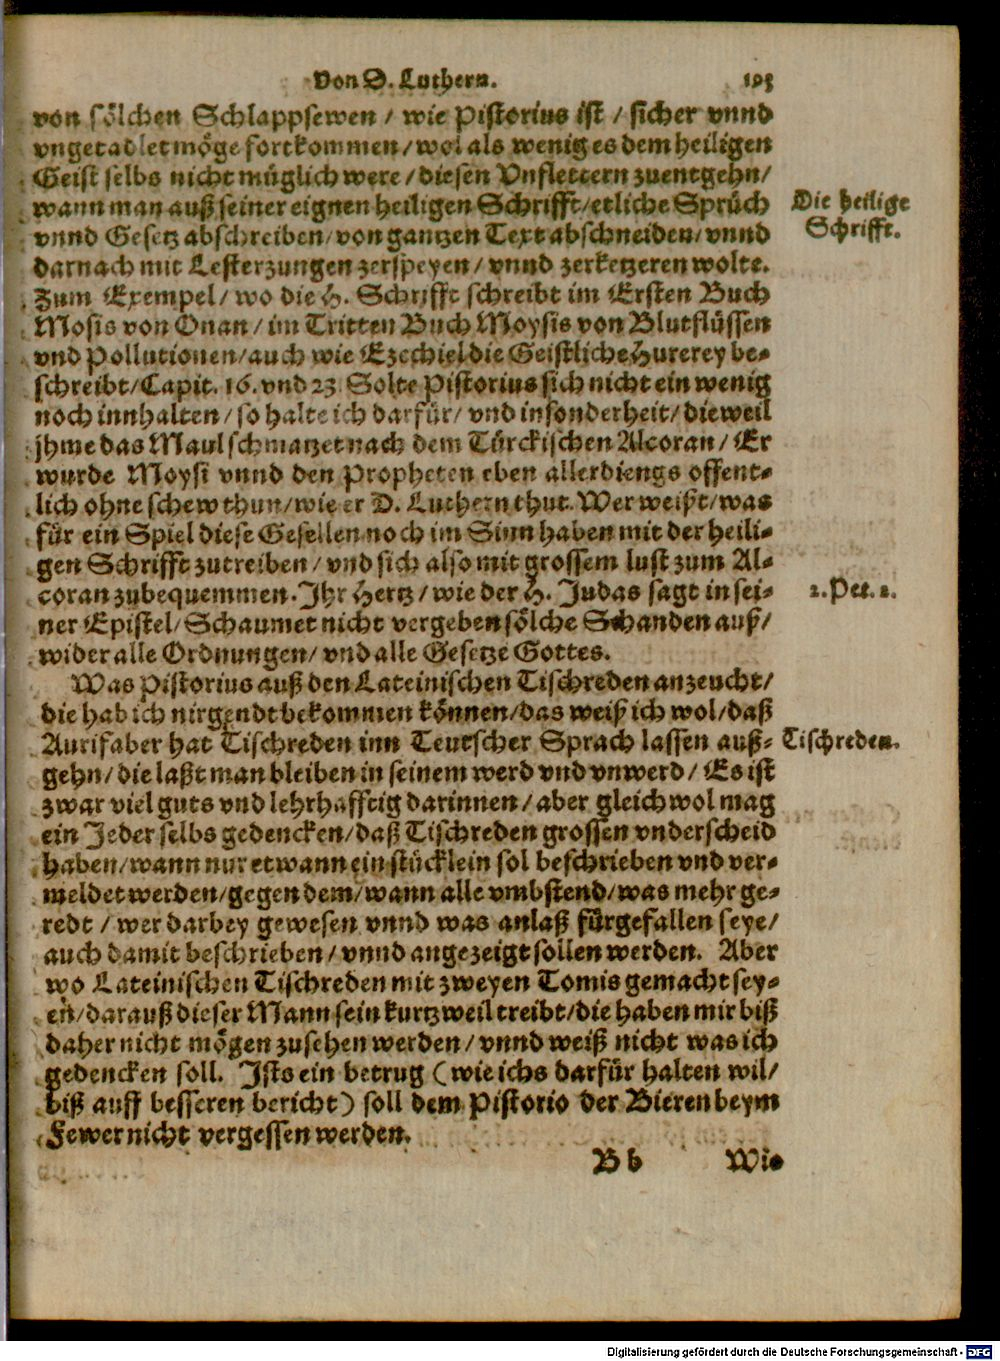 Von D. Luthern. 193
von sölchen Schlappsewen / wie Pistorius ist / sicher vnnd
vngetadlet möge fortkommen / wol als wenig es dem heiligen
Geist selbs nicht müglich were / diesen Vnfletern zuentgehn /
wann man auß seiner eignen heiligen Schrifft / etliche Sprüch
Die heilige
vnnd Gesetz abschreiben / von gantzen Text abschneiden / vnnd
Schrifft.
darnach mit Lesterzungen zerspeyen / vnnd zerketzeren wolte.
Zum Exempel / wo die H. Schrifft schreibt im Ersten Buch
Mosis von Onan / im Tritten Buch Moysis von Blutflüssen
vnd Pollutionen / auch wie Ezechiel die Geistliche Hurerey be-
schreibt / Capit. 16. vnd 23. Solte Pistorius sich nicht ein wenig
noch innhalten / so halte ich darfür / vnd insonderheit / dieweil
jhme das Maul schmatzet nach dem Türckischen Alcoran / Er
wurde Moysi vnnd den Propheten eben allerdiengs offent-
lich ohne schew thun / wie er D. Luthern thut. Wer weißt / was
für ein Spiel diese Gesellen noch im Sinn haben mit der heili-
gen Schrifft zutreiben / vnd sich also mit grossem lust zum Al-
coran zubequemmen. Ihr Hertz / wie der H. Judas sagt in sei-
2. Pet. 2.
ner Epistel / Schaumet nicht vergeben sölche Schanden auß /
wider alle Ordnungen / vnd alle Gesetze Gottes.
Was Pistorius auß den Lateinischen Tischreden anzeucht /
die hab ich nirgendt bekommen können / das weiß ich wol / daß
Aurifaber hat Tischreden inn Teutscher Sprach lassen auß-
Tischreden.
gehn / die laßt man bleiben in seinem werd vnd vnwerd / Es ist
zwar viel guts vnd lehrhafftig darinnen / aber gleichwol mag
ein Jeder selbs gedencken / daß Tischreden grossen vnderscheid
haben / wann nur etwann ein stücklein sol beschrieben vnd ver-
meldet werden / gegen dem / wann alle vmbstend / was mehr ge-
redt / wer darbey gewesen vnnd was anlaß fürgefallen seye /
auch damit beschrieben / vnnd angezeigt sollen werden. Aber
wo Lateinischen Tischreden mit zweyen Tomis gemacht sey-
en / darauß dieser Mann sein kurtzweil treibt / die haben mir biß
daher nicht mögen zusehen werden / vnnd weiß nicht was ich
gedencken soll. Ists ein betrug (wie ichs darfür halten wil /
biß auff besseren bericht) soll dem Pistorio der Bieren beym
Fewer nicht vergessen werden.
B b Wie
Digitalisierung gefördert durch die Deutsche Forschungsgemeinschaft - DFG